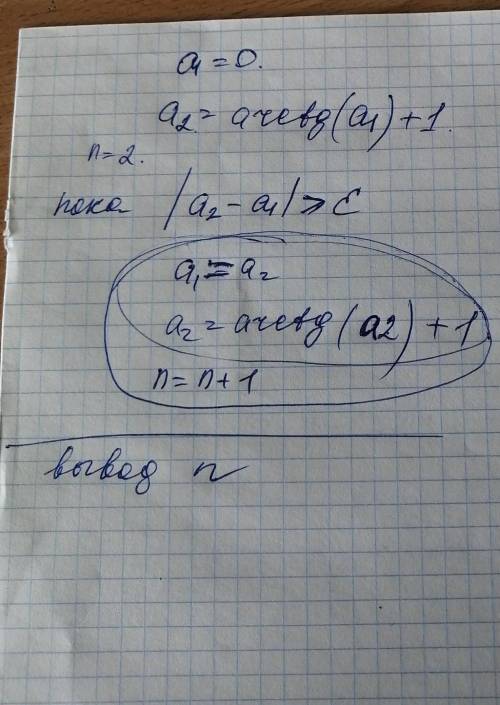 a₁ = 0.
a₂ = arctg(a₁) + 1.
n = 2.
пока |a₂ - a₁| > ε
a₁ = a₂
a₂ = arctg(a2) + 1
n = n + 1
вывод n